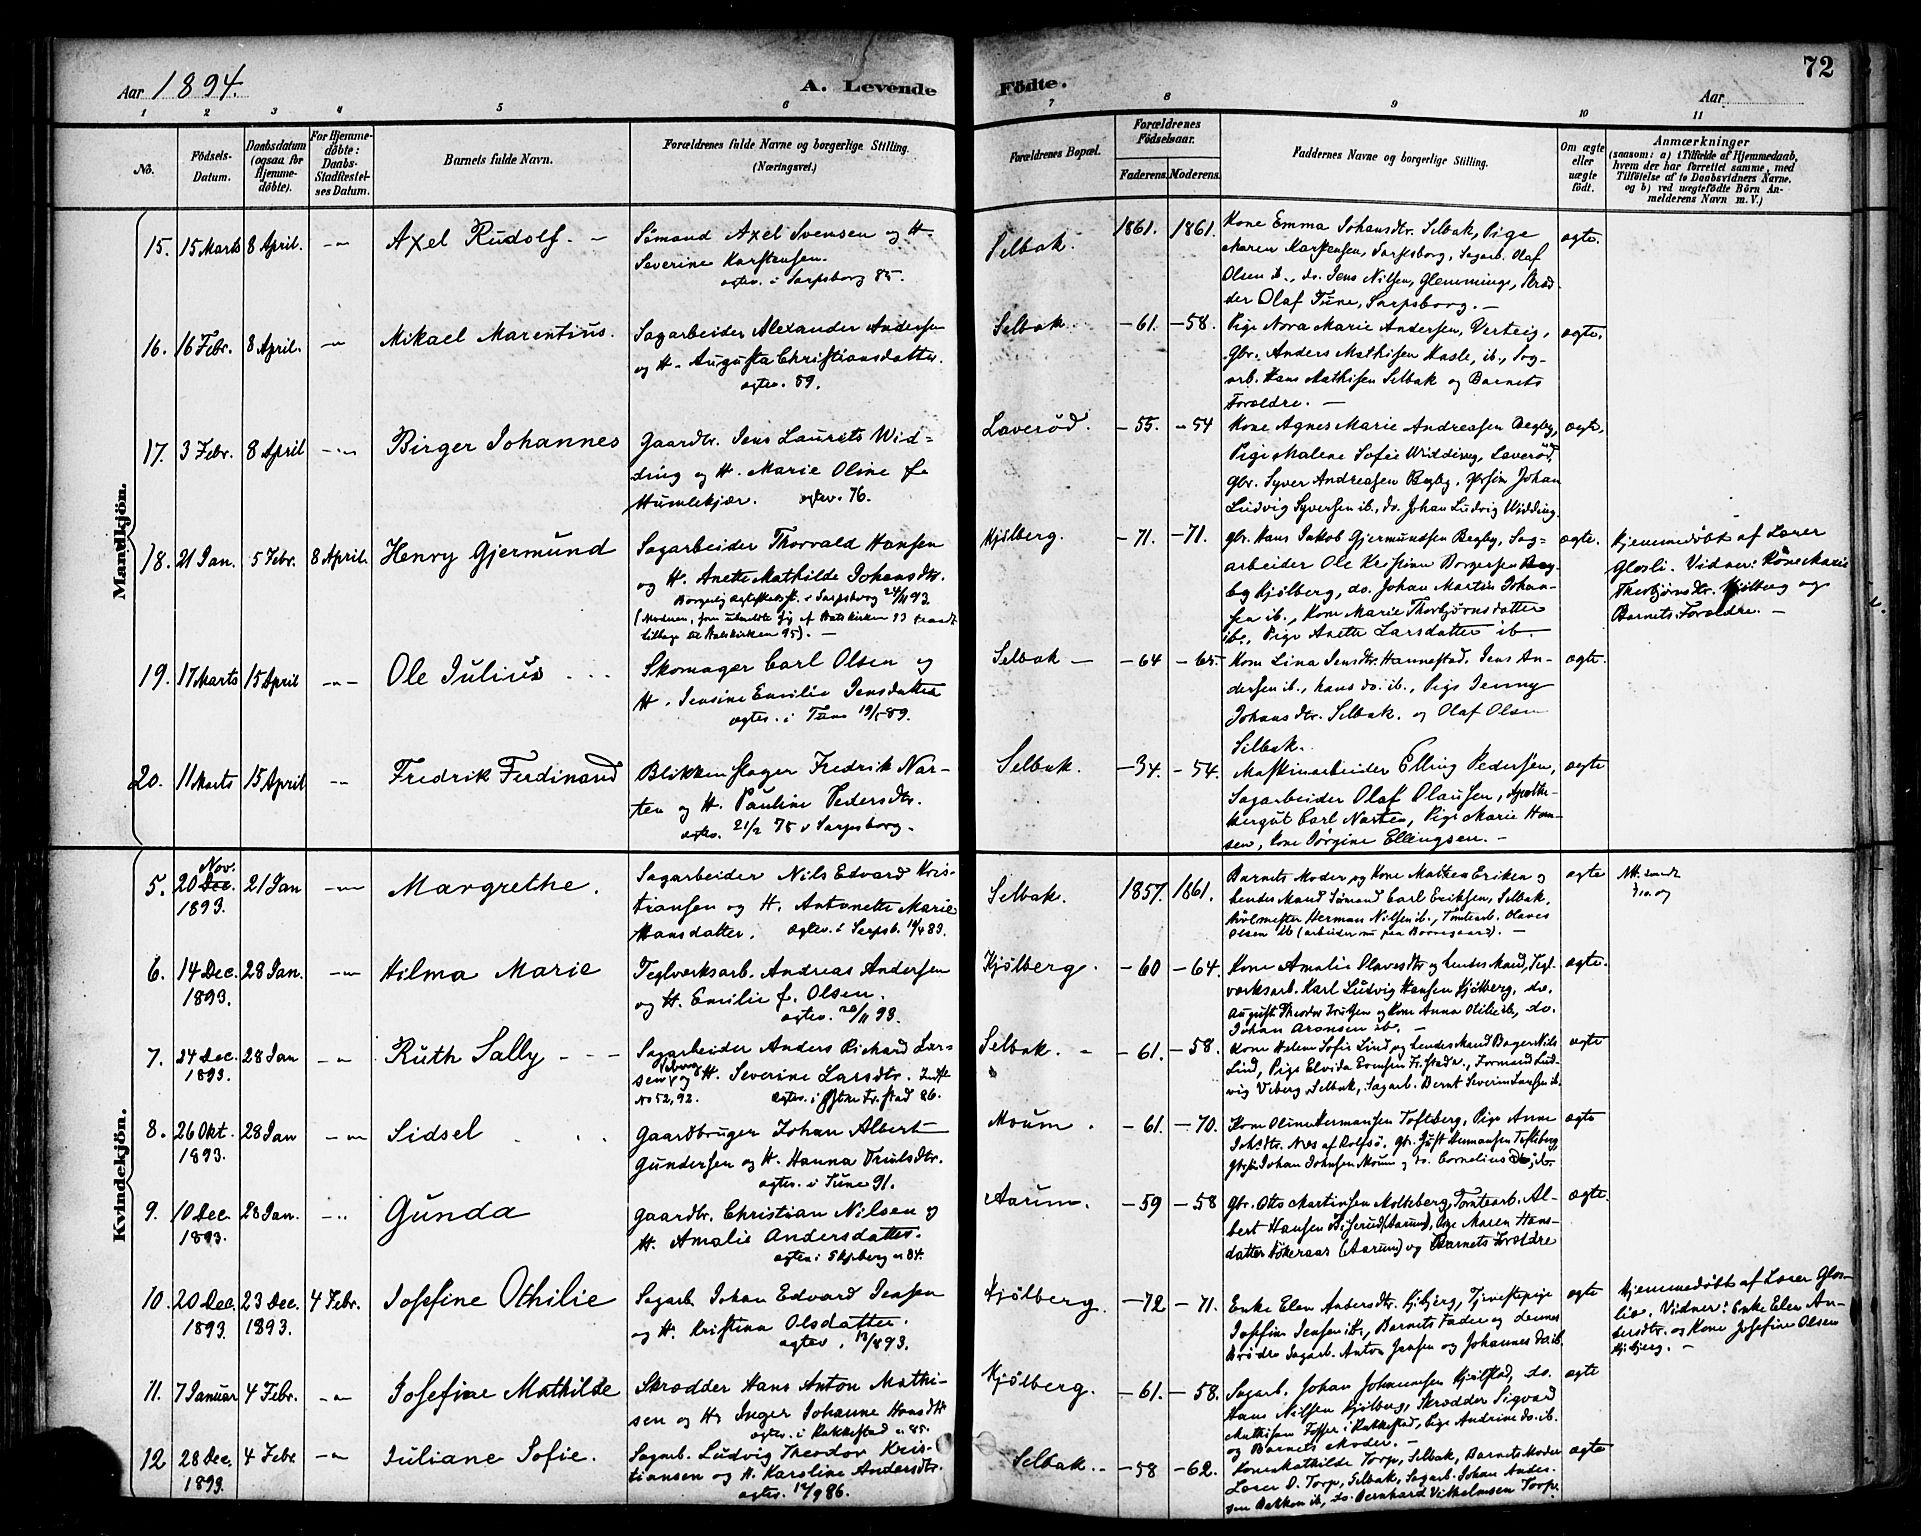 Aar 1894.
A. Levende
Fødte.
72
Aar
1 2 3 4 5 6 7 8 9 10 11
No.
Fødsels-
Datum.
Daabsdatum
(ogsaa for
Hjemme-
døbte).
For Hjemme-
døbte:
Daabs-
Stadfæstel-
ses Datum.
Barnets fulde Navn.
Forældrenes fulde Navne og borgerlige Stilling.
(Næringsvei.)
Forældrenes Bopæl.
Forældrenes
Fødselsaar.
Faderens.
Moderens.
Faddernes Navne og borgerlige Stilling.
Om ægte
eller
uægte
født.
Anmærkninger
(saasom: a) i Tilfælde af Hjemmedaab,
hvem der har forrettet samme, med
Tilføielse af to Daabsvidners Navne.
og b) ved uægtefødte Børn An-
melderens Navn m. V.)
Mandkjön.
15. 15 Marts 8 April. -"- Axel Rudolf. -
Sømand Axel Svensen og H.
Severine Karstensen.
ægtev. i Sarpsborg 85.
Selbak. 1861. 1861.
Kone Emma Johansdtr. Selbak, Pige
Maren Karstensen, Sarpsborg, Sagarb. Olaf
Olsen ib., do. Jens Nilsen, Glemminge, Brød-
der Olaf Tune, Sarpsborg. -
ægte.
16. 16 Febr. 8 April. -"- Mikael Marentius.
Sagarbeider Alexander Andersen
og H. Augusta Christiansdatter.
ægtev. 89.
Selbak. -61. -58.
Pige Nora Marie Andersen, Verteig,
Gbr. Anders Mathisen Hasle, ib., Sag-
arb. Hans Mathisen Selbak og Barnets
Forældre. -
ægte.
17. 3 Febr. 8 April -"- Birger Johannes
Gaardbr. Jens Laurits Wid-
ding og H. Marie Oline f.
Humlekjær. ægtev. 76.
Laverød. -55. -54
Kone Agnes Marie Andreasen Begby,
Pige Malene Sofie Widding, Laverød,
Gbr. Syver Andreasen Begby, Johan
Ludvig Syversen ib., do. Johan Ludvig Widding.
ægte.
18. 21 Jan. 5 Febr. 8 April. Henry Gjermund
Sagarbeider Thorvald Hansen
og H. Anette Mathilde Johansdtr.
Borgerlig Ægteskabsst. i Sarpsborg 24/11 93.
(Moderen, som udmeldte sig af Statskirken 93 traadt
tilbage til Statskirken 95). -
Kjølberg. -71. -71.
Gbr. Hans Jakob Gjermundsen Begby, Sag-
arbeider Ole Kristian Borgersen
Kjølberg, do. Johan Martin Johan-
sen ib., Kone Marie Thorbjørnsdatter
ib., Pige Anette Larsdatter ib.
ægte.
Hjemmedøbt af Lærer
Glosli. Vidner: Kone Marie
Thorbjørnsdtr. Kjølberg og
Barnets Forældre. -
19. 17 Marts 15 April -"- Ole Julius
Skomager Carl Olsen og
H. Jensine Emilie Jensdatter
ægtev. i Tune 19/5 89.
Selbak - -64 -65.
Kone Lina Jensdtr. Hannestad, Jens An-
dersen ib., Hans do. ib., Pige Jenny
Johansdtr. Selbak. og Olaf Olsen
Selbak.
ægte.
20. 11 Marts 15 April -"- Fredrik Ferdinand
Blikkenslager Fredrik Nar-
ten og H. Pauline Pedersdtr.
ægtev. 21/2 75 i Sarpsborg.
Selbak. -34. -54.
Maskinarbeider Elling Pedersen,
Sagarbeider Olaf Olausen, Apothe-
kergut Carl Narten, Pige Marie Han-
sen, Kone Jørgine Ellingsen. -
ægte
Kvindekjön.
5. 20 Dec. Nov. 1893. 21 Jan -"- Margrethe.
Sagarbeider Nils Edvard Kris-
tiansen og H. Antonette Marie
Hansdatter. ægtev. i Sarpsb. 14/4 83.
Selbak. 1857. 1861.
Barnets Moder og Kone Mathea Eriksen og
hendes Mand Sømand Carl Eriksen, Selbak,
Herman Nilsen ib., Tomtearb. Olaves
Olsen ib (arbeider nu paa Borregaard). -
ægte
6. 14 Dec. 1893. 28 Jan. -"- Hilma Marie
Teglværksarb. Andreas Andersen
og H. Emilie f. Olsen.
ægtev. 20/11 93.
Kjølberg. -60 -64.
Kone Amalie Olavesdtr og hendes Mand, Tegl-
værksarb. Karl Ludvig Hansen Kjølberg, do.
August Theodor Knutsen og Kone Anna Otilie ib, do.
Johan Aronsen ib. -
ægte.
7. 24 Dec. 1893. 28 Jan -"- Ruth Sally - - -
Sagarbeider Anders Richard Lar-
sen Viberg og H. Severine Larsdtr. Indst.
No 52, 92. ægtev. i Østre Fr.stad 86.
Selbak. - -61. -58.
Kone Helene Sofie Lind og hendes Mand Bager Nils
Lind, Pige Elvida Evensen Fr.stad v., Formand Lud-
vig Viberg, Selbak, Sagarb. Bernt Severin Larsen ib.
ægte
8. 26 Okt. 1893. 28 Jan -"- Sidsel
Gaardbruger Johan Albert
Gundersen og H. Hanna Trulsdtr.
ægtev. i Tune 91.
Moum. -61. -70.
Kone Oline Hermansen Tofteberg, Pige Anne
Johsdtr. Næs af Rolfsø, Gbr. Gust Hermansen Tofteberg,
Johan Johnsen Moum og do. Cornelius do ib.
ægte
9. 10 Dec. 1893. 28 Jan. -"- Gunda
Gaardbr. Christian Nilsen og
H. Amalie Andersdatter.
ægtev. i Skjeberg 84.
Aarum. -59 -58
Gbr. Otto Martinsen Molteberg, Tomtearb. Al-
bert Hansen (Aarum), Pige Maren Hans-
datter (Aarum) og Barnets Forældre
ægte.
10. 20 Dec. 1893. 23 Dec. 1893. 4 Febr. Josefine Othilie
Sagarb. Johan Edvard Jensen
og H. Kristina Olsdatter.
ægtev. 13/8 93.
Kjølberg. -72 -71.
Enke Elen Andersdtr. Kibjerg, Tjenestepige
Josefine Jensen ib., Barnets Fader og dennes
Brødre Sagarb. Anton Jensen og Johannes do ib.
ægte
Hjemmedøbt af Lærer Glos-
lie. Vidner: Enke Elen An-
dersdtr. og Kone Josefine Olsen
Kibjerg. -
11. 7 Januar 4 Febr. -"- Josefine Mathilde
Skrædder Hans Anton Mathi-
sen og H. Inger Johanne Hansdtr
ægtev. i Rakkestad 85.
Kjølberg. -61. -58.
Sagarb. Johan Johannesen Kjølstad, do.
Hans Nilsen Kjølberg, Skrædder Sigvard
Mathisen i Rakkestad, Pige Andrine do. ib.
og Barnets Moder. -
ægte
12 28 Dec. 1893. 4 Febr. -"- Juliane Sofie.
Sagarb. Ludvig Theodor Kris-
tiansen og H. Karoline Andersdtr.
ægtev. 12/9 86.
Selbak. -58 -62.
Kone Mathilde Torp, Selbak, Barnets Moder
Lærer O. Torp, Selbak, Sagarb. Johan Ander-
sen Bakken ib, do. Bernhard Vilhelmsen Torp.
ægte